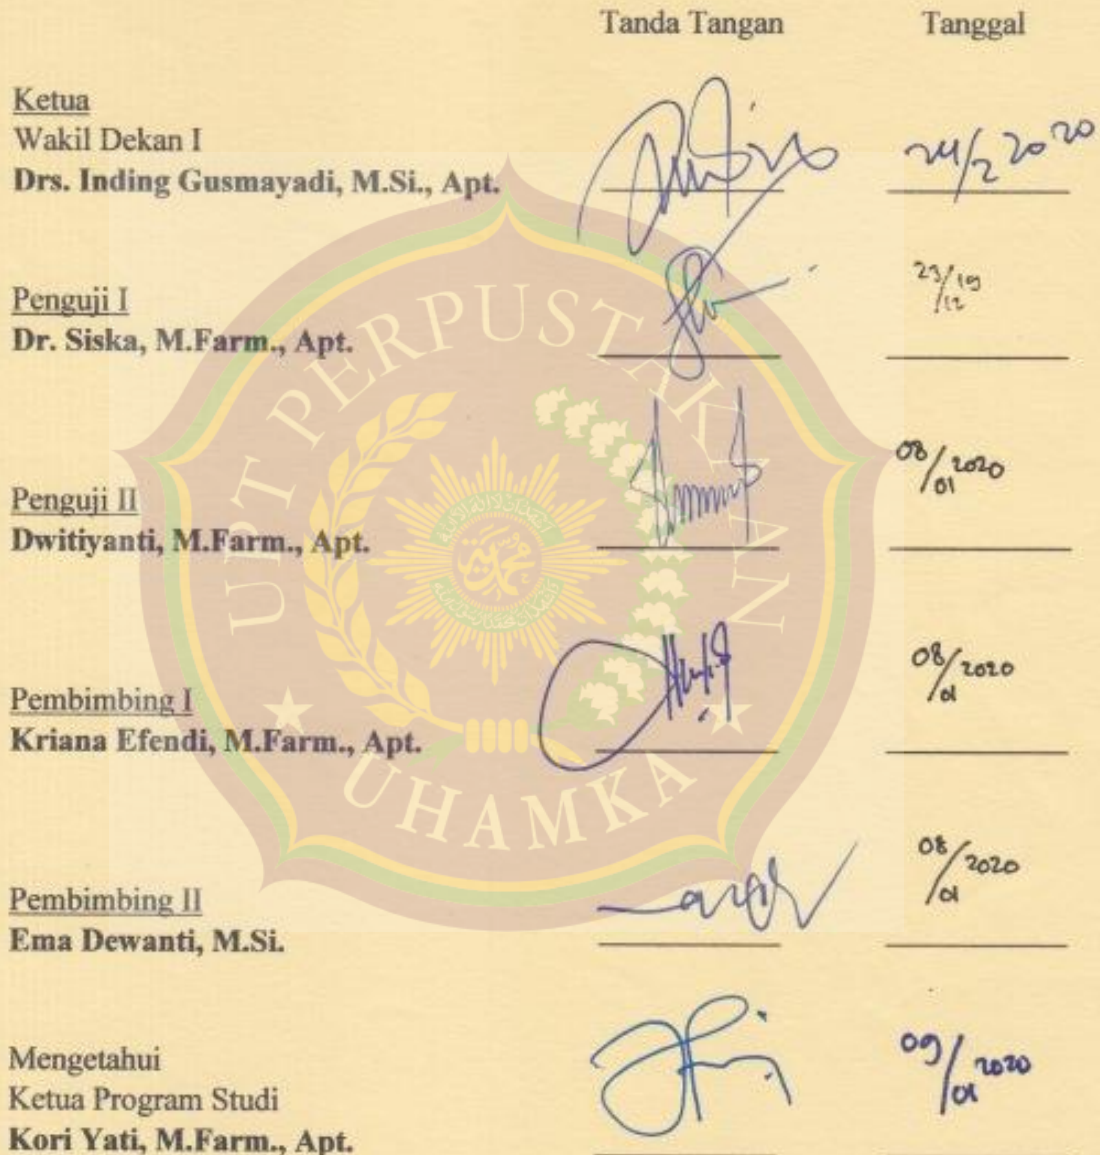 Tanda Tangan Tanggal
Ketua
Wakil Dekan I
Drs. Inding Gusmayadi, M.Si., Apt. 24/2 2020
Penguji I 23/19
/12
Dr. Siska, M.Farm., Apt.
08/2020
/01
Penguji II
Dwitiyanti, M.Farm., Apt.
08/2020
/01
Pembimbing I
Kriana Efendi, M.Farm., Apt.
08/2020
/01
Pembimbing II
Ema Dewanti, M.Si.
Mengetahui 09/2020
/01
Ketua Program Studi
Kori Yati, M.Farm., Apt.
UPT PERPUSTAKAAN
UHAMKA
محمدية